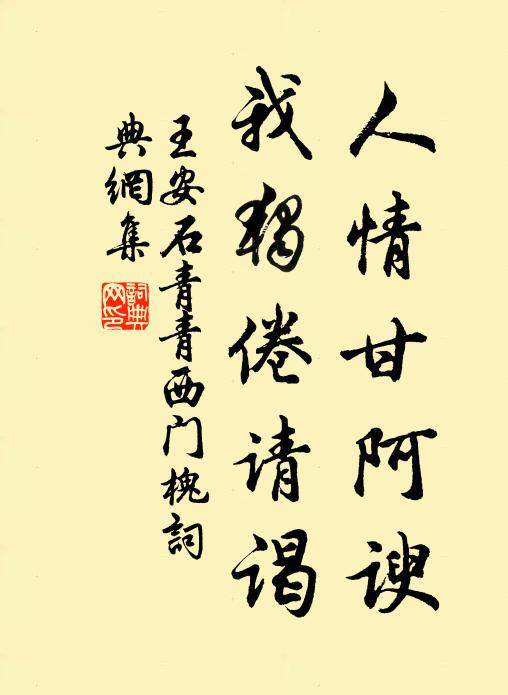 人情甘阿谀
我独倦请谒
王安石青青西门槐詞
典網集
詞典网印